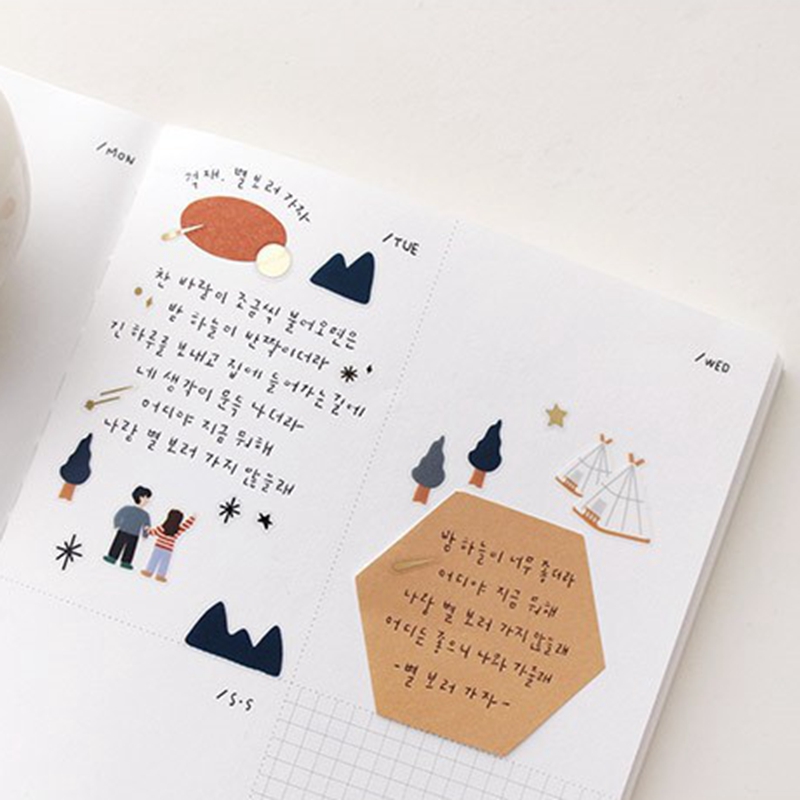 /MON
적재. 별 보러 가자
/TUE
찬 바람이 조금씩 불어오면은
밤 하늘이 반짝이더라
긴 하루를 보내고 집에 들어가는 길에
네 생각이 문득 나더라
어디야 지금 뭐해
나랑 별 보러 가지 않을래
/S·S
/WED
밤 하늘이 너무 좋더라
어디야 지금 뭐해
나랑 별 보러 가지 않을래
어디든 좋으니 나와 가줄래
-별 보러 가자-